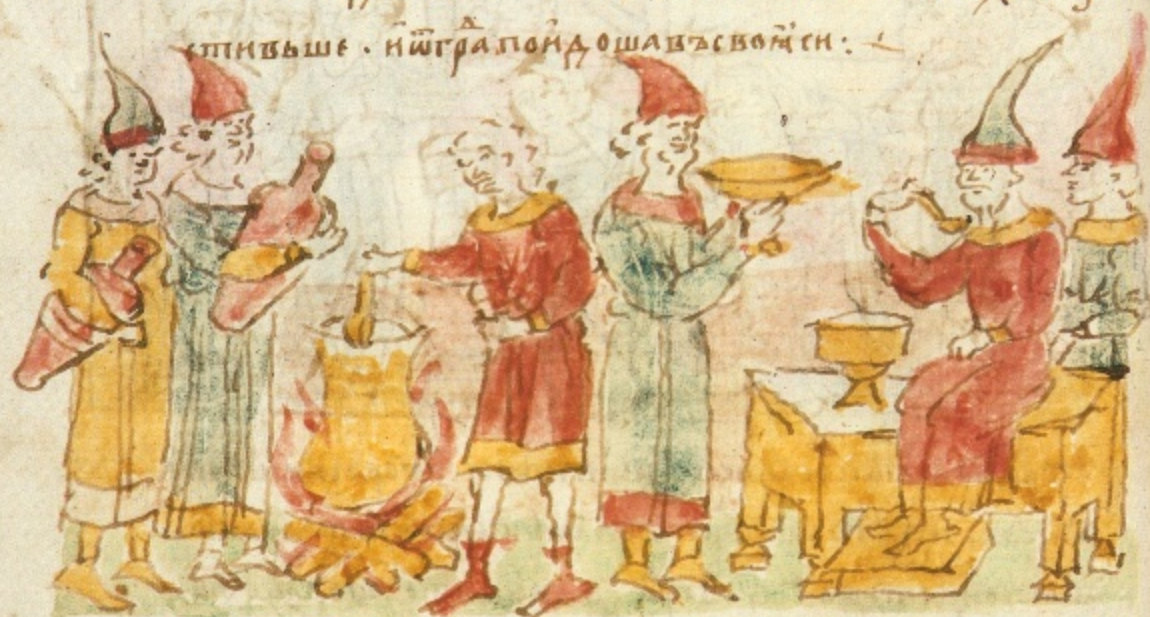 стивъше · и ѿ гра д поидоша въ своꙗ си :